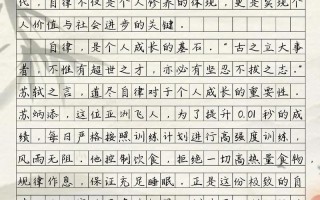 代，自律不仅是个人修养的体现，更是实现个
人价值与社会进步的关键。
自律，是个人成长的基石。“古之立大事
者，不惟有超世之才，亦必有坚忍不拔之志。”
苏轼之言，道尽自律对于个人成长的重要性。
苏炳添，这位亚洲飞人，为了提升0.01秒的成
绩，每日严格按照训练计划进行高强度训练，
风雨无阻。他控制饮食，拒绝一切高热量食物，
规律作息，保证充足睡眠。正是这份极致的自